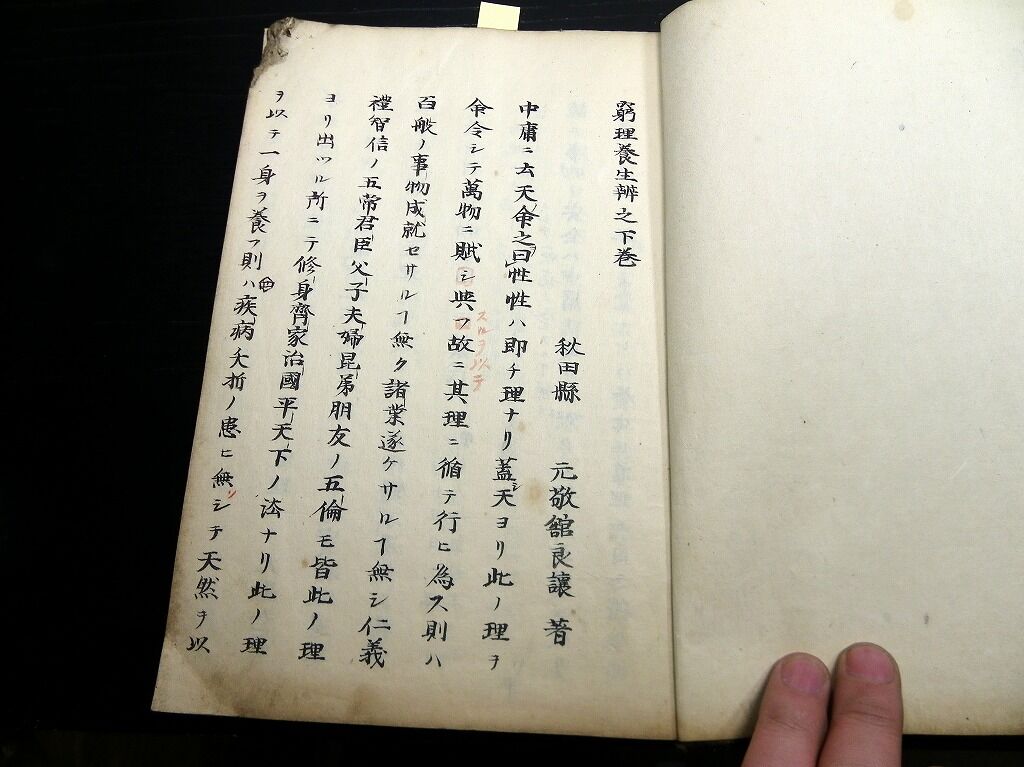 窮理養生辨之下巻
秋田縣 元敬舘良讓 著
中庸ニ云天命之曰性性ハ即チ理ナリ蓋シ天ヨリ此ノ理ヲ
命令シテ萬物ニ賦シ與フ故ニ其理ニ循テ行ヒ為ス則ハ
スルヲ以テ
百般ノ事物成就セサルヿ無ク諸業遂ケサルヿ無シ仁義
禮智信ノ五常君臣父子夫婦昆弟朋友ノ五倫モ皆此ノ理
ヨリ出ツル所ニテ修身齊家治國平天下ノ法ナリ此ノ理
ヲ以テ一身ヲ養フ則ハ疾病夭折ノ患ヒ無シテ天然ヲ以